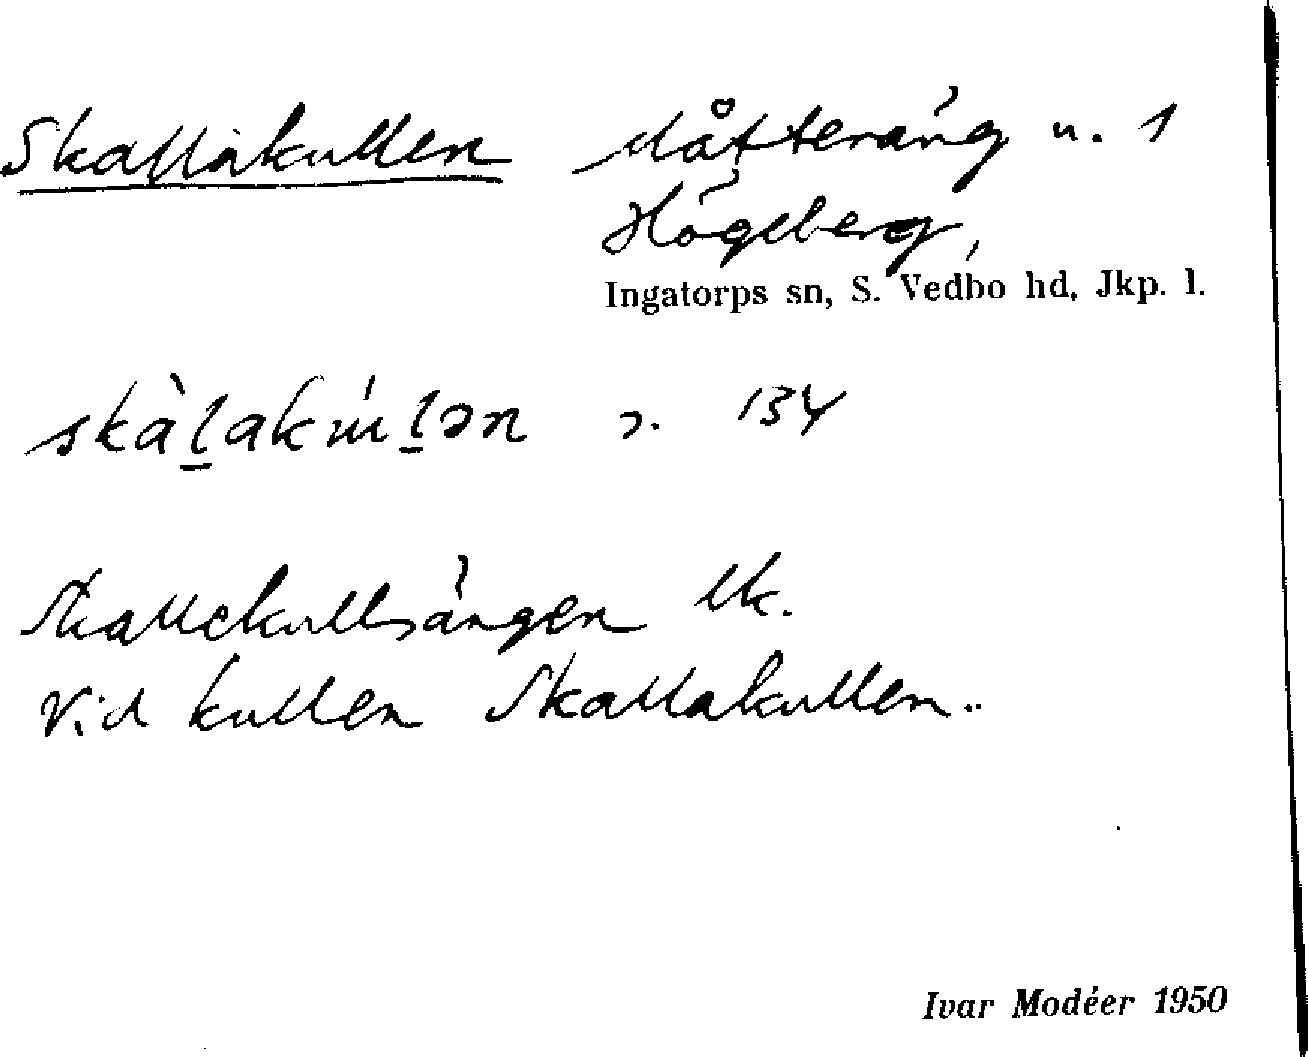 Skallakullen slåtteräng n. 1
Högeberg,
Ingatorps sn, S. Vedbo hd, Jkp. l.
skàl̲akúl̲ən s. 134
Skallekullsängen lk.
Vid kullen Skallakullen..
Ivar Modéer 1950